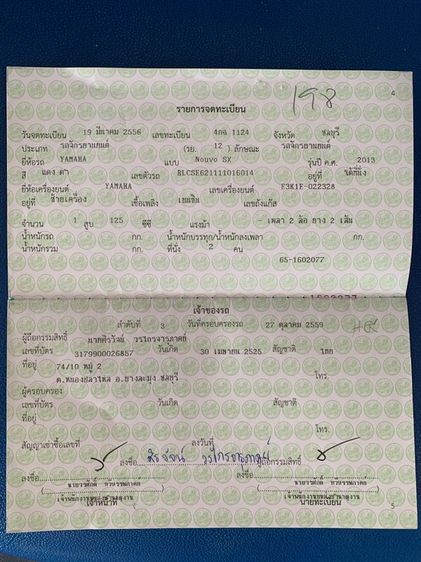 198
4
รายการจดทะเบียน
วันจดทะเบียน 19 มีนาคม 2556 เลขทะเบียน 4กฉ 1124 จังหวัด ชลบุรี
ประเภท รถจักรยานยนต์ (รย. 12) ลักษณะ รถจักรยานยนต์
ยี่ห้อรถ YAMAHA แบบ Nouvo SX รุ่นปี ค.ศ. 2013
สี แดง ดำ เลขตัวรถ RLCSE621111016014 อยู่ที่ ใต้ที่นั่ง
ยี่ห้อเครื่องยนต์ YAMAHA เลขเครื่องยนต์ E3K1E-022328
อยู่ที่ ซ้ายเครื่อง เชื้อเพลิง เบนซิน เลขถังแก๊ส
จำนวน 1 สูบ 125 ซีซี แรงม้า - เพลา 2 ล้อ ยาง 2 เส้น
น้ำหนักรถ กก. น้ำหนักบรรทุก/น้ำหนักลงเพลา กก.
น้ำหนักรวม กก. ที่นั่ง 2 คน
65-1602077
เจ้าของรถ
ลำดับที่ 3 วันที่ครอบครองรถ 27 ตุลาคม 2559
ผู้ถือกรรมสิทธิ์
เลขที่บัตร 3179900026857 วันเกิด 30 เมษายน 2525 สัญชาติ ไทย
ที่อยู่ 74/10 หมู่ 2 โทร.
ต.หนองปลาไหล อ.บางละมุง ชลบุรี
ผู้ครอบครอง
เลขที่บัตร วันเกิด สัญชาติ
ที่อยู่ โทร.
สัญญาเช่าซื้อเลขที่ ลงวันที่
ลงชื่อ ผู้ถือกรรมสิทธิ์
ลงชื่อ ลงชื่อ
เจ้าหน้าที่ นายทะเบียน
5